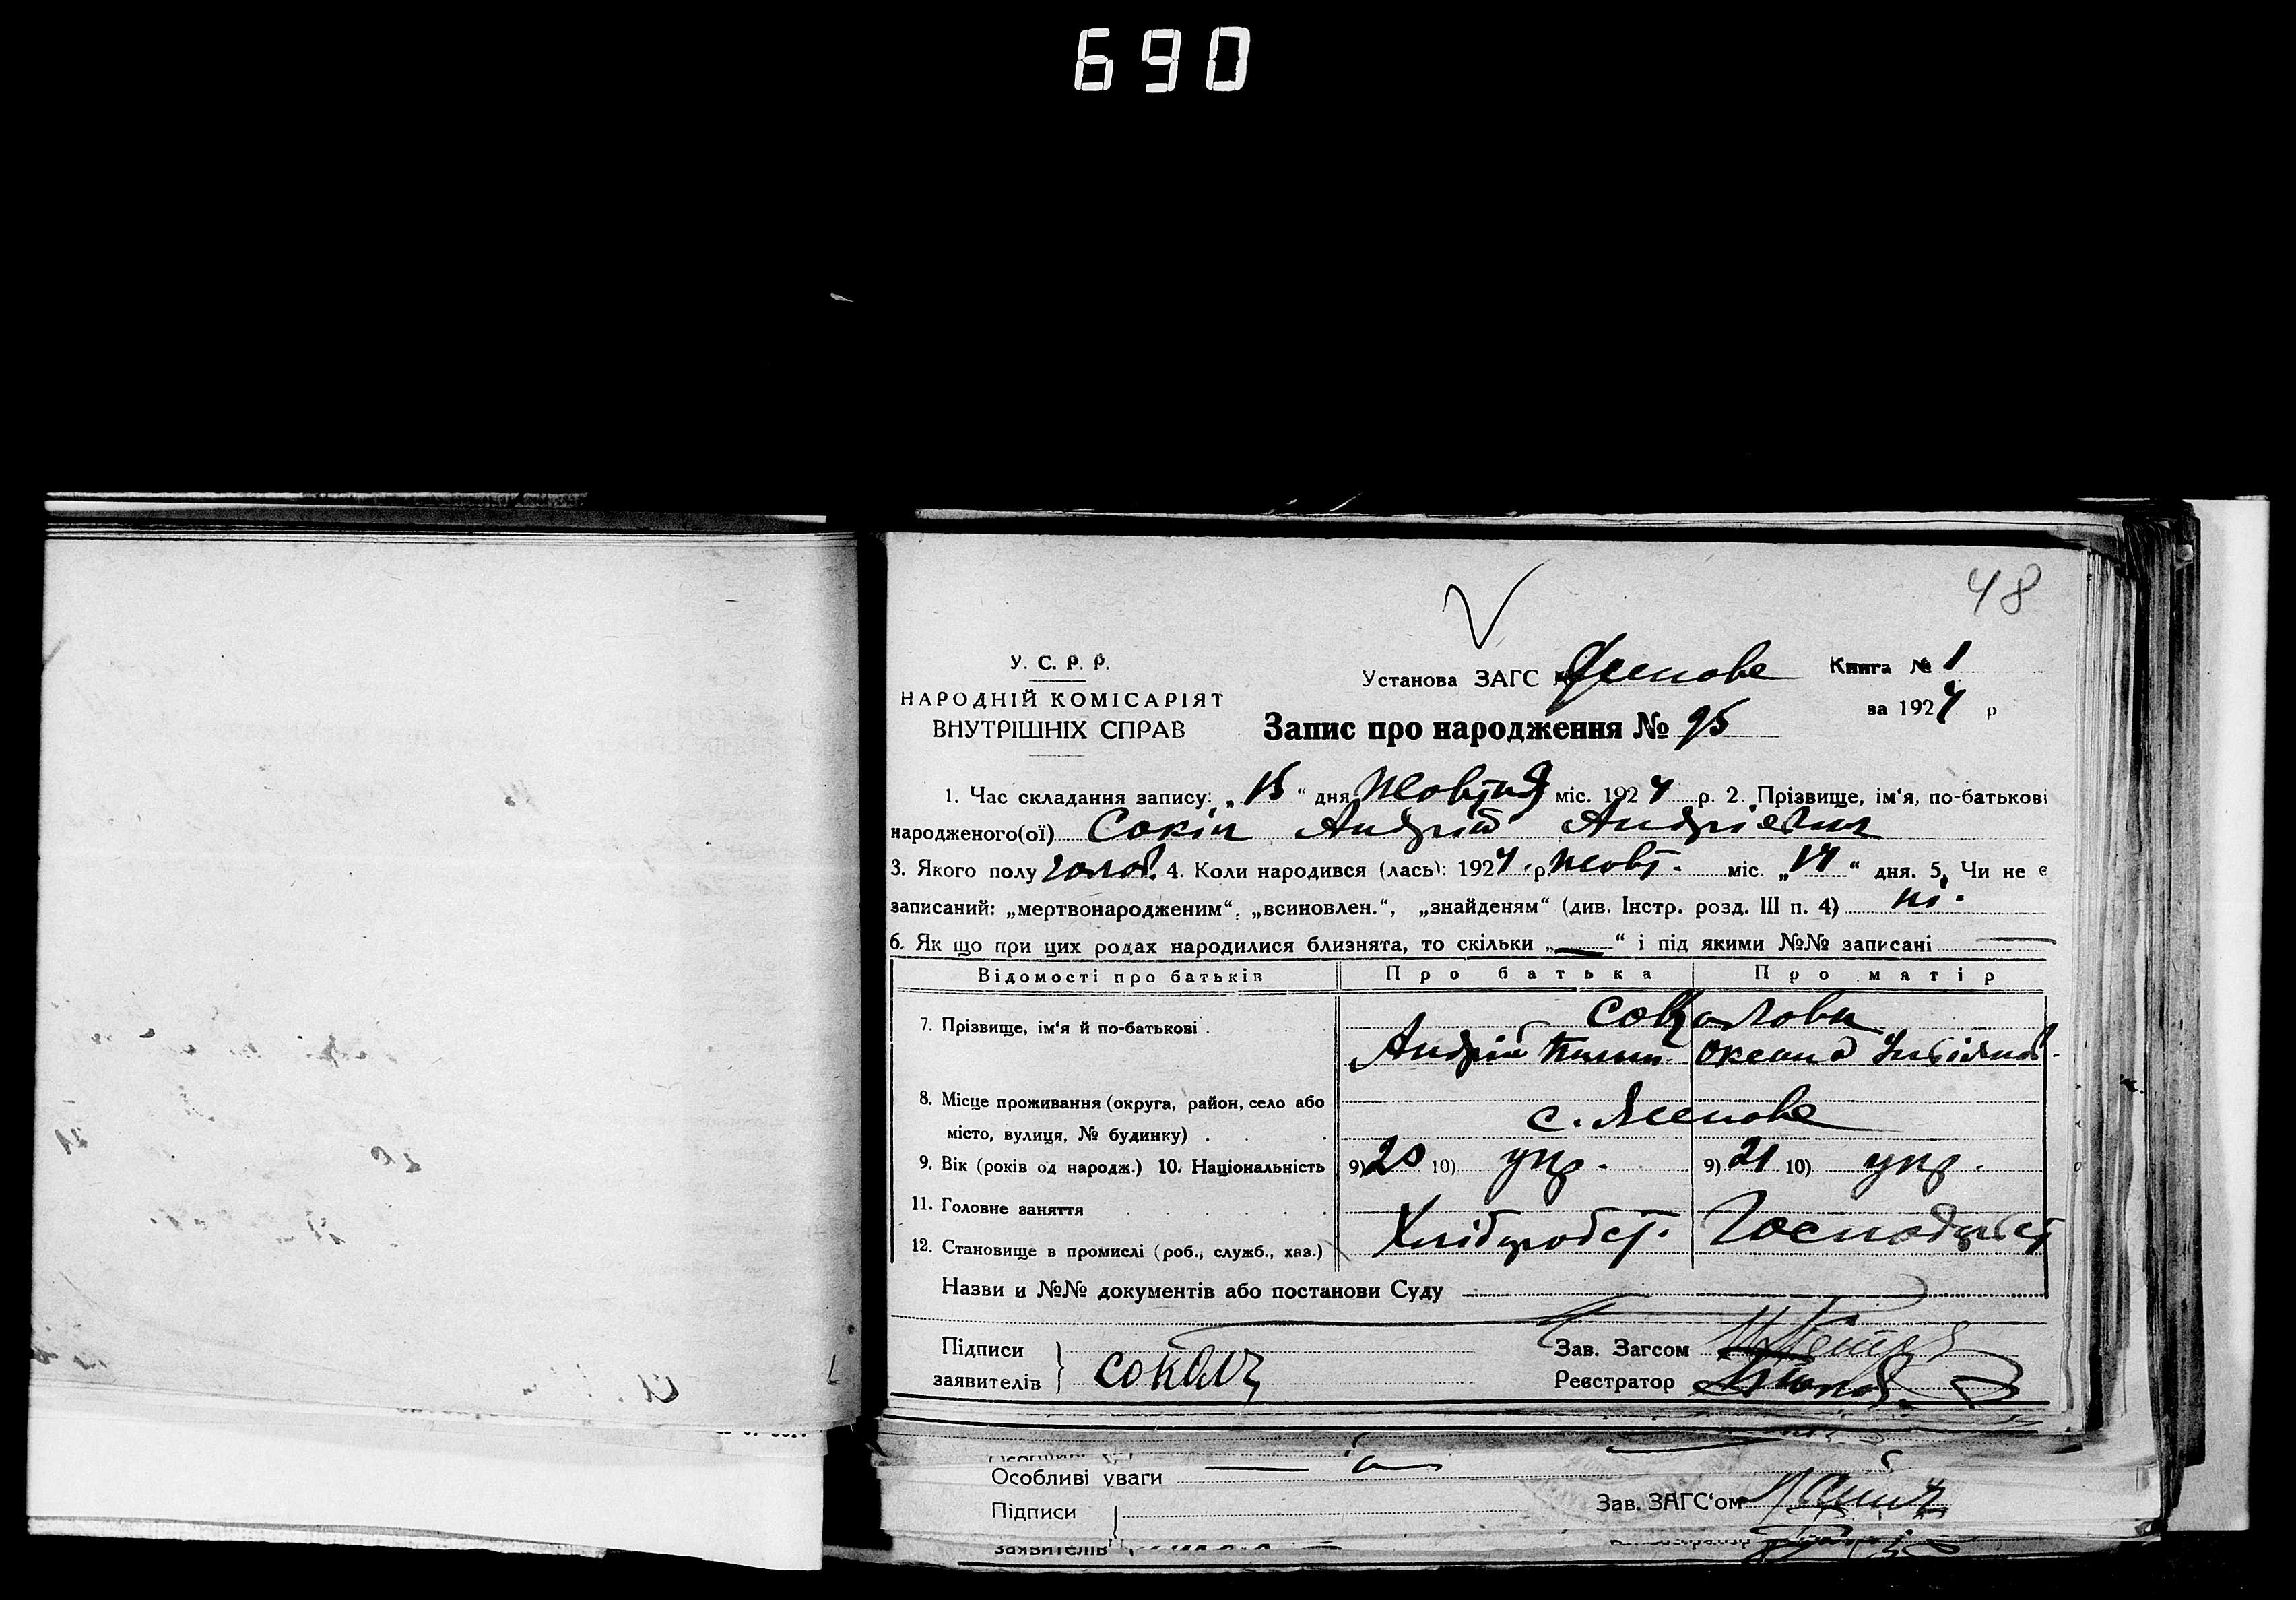 690
48
У. С. Р. Р.
НАРОДНІЙ КОМІСАРІЯТ
ВНУТРІШНІХ СПРАВ
Установа ЗАГС
Книга № 1
за 1924 р
Запис про народження № 95
1. Час складання запису: „15“ дня Жовтня міс. 1924 р. 2. Прізвище, ім‘я, по-батькові
народженого(ої) Сокіл Андрій Андрієвич
3. Якого полу чолов. 4. Коли народився (лась): 1924 р. жовт. міс. „14“ дня. 5. Чи не є
записаний: „мертвонародженим“, „всиновлен.“, „знайденям“ (див. Інстр. розд. III п. 4) ні.
6. Як що при цих родах народилися близнята, то скільки „—“ і під якими №№ записані —
Відомості про батьків Про батька Про матір
7. Прізвище, ім‘я й по-батькові .
Андрій Оксана
8. Місце проживання (округа, район, село або
місто, вулиця, № будинку) . с. Ясенове
9. Вік (років од народж.) 10. Національність 9) 20 10) укр. 9) 21 10) укр.
11. Головне заняття
12. Становище в промислі (роб., служб., хаз.) Хлібороб
Назви и №№ документів або постанови Суду
Підписи
заявителів
Зав. Загсом
Реєстратор
Особливі уваги
Підписи
Зав. ЗАГС‘ом
заявителів